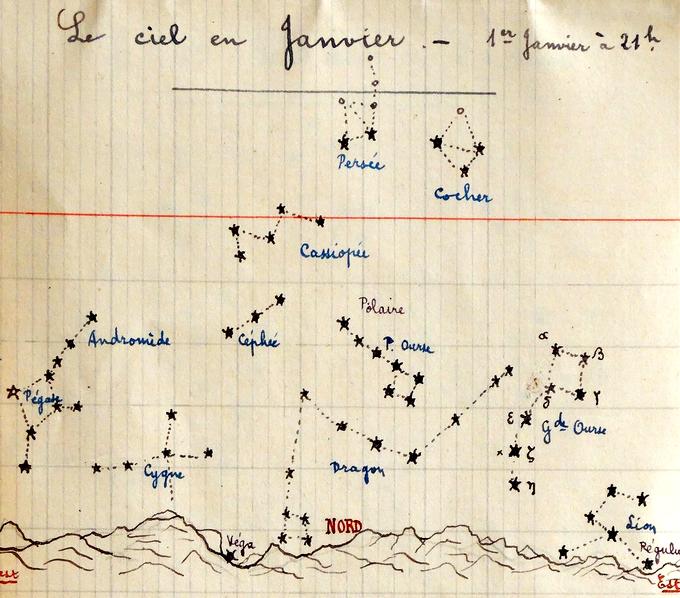 Le ciel en Janvier. — 1er Janvier à 21h.
Persée
Cocher
Cassiopée
Pôlaire
Andromède
Céphée
P. Ourse
α
β
Pégase
δ
γ
ε
Gde Ourse
ζ
Cygne
Dragon
η
NORD
Lion
Véga
Régulu
est
Est